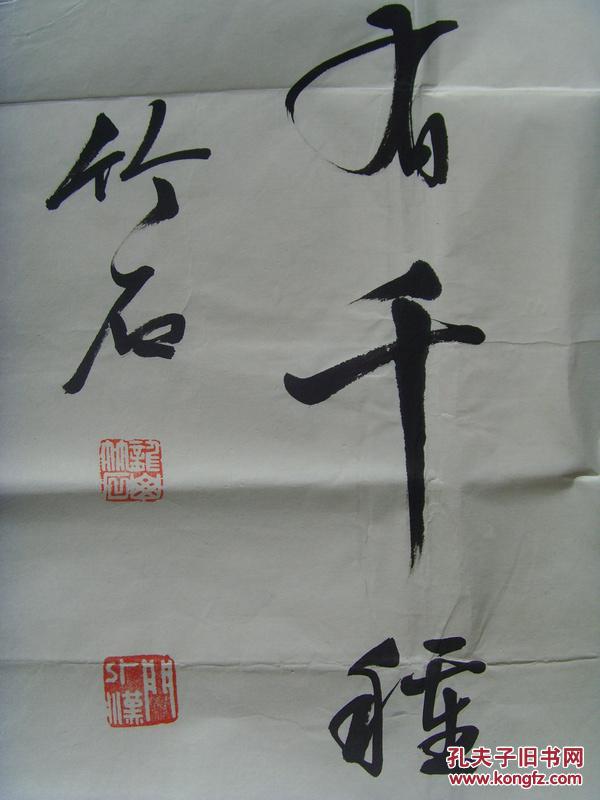 有千種
竹石
孔夫子旧书网
www.kongfz.com